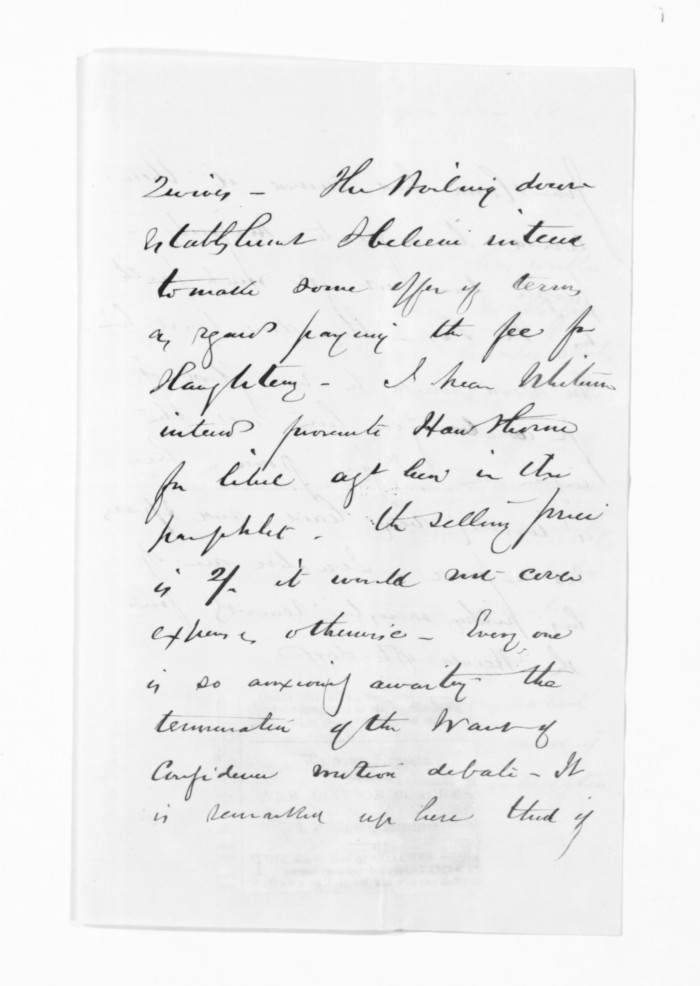 – The Boiling down
Establishment I believe intend
to make some offer of terms
as regards paying the fee for
Slaughtering – I hear Whitmore
intends prosecute Hawthorne
for libel agt him in the
pamphlet . the selling price
is 2/- it would not cover
expenses otherwise – Every one
is so anxiously awaiting the
termination of the Want of
Confidence motion debate – It
is remarked up here that if